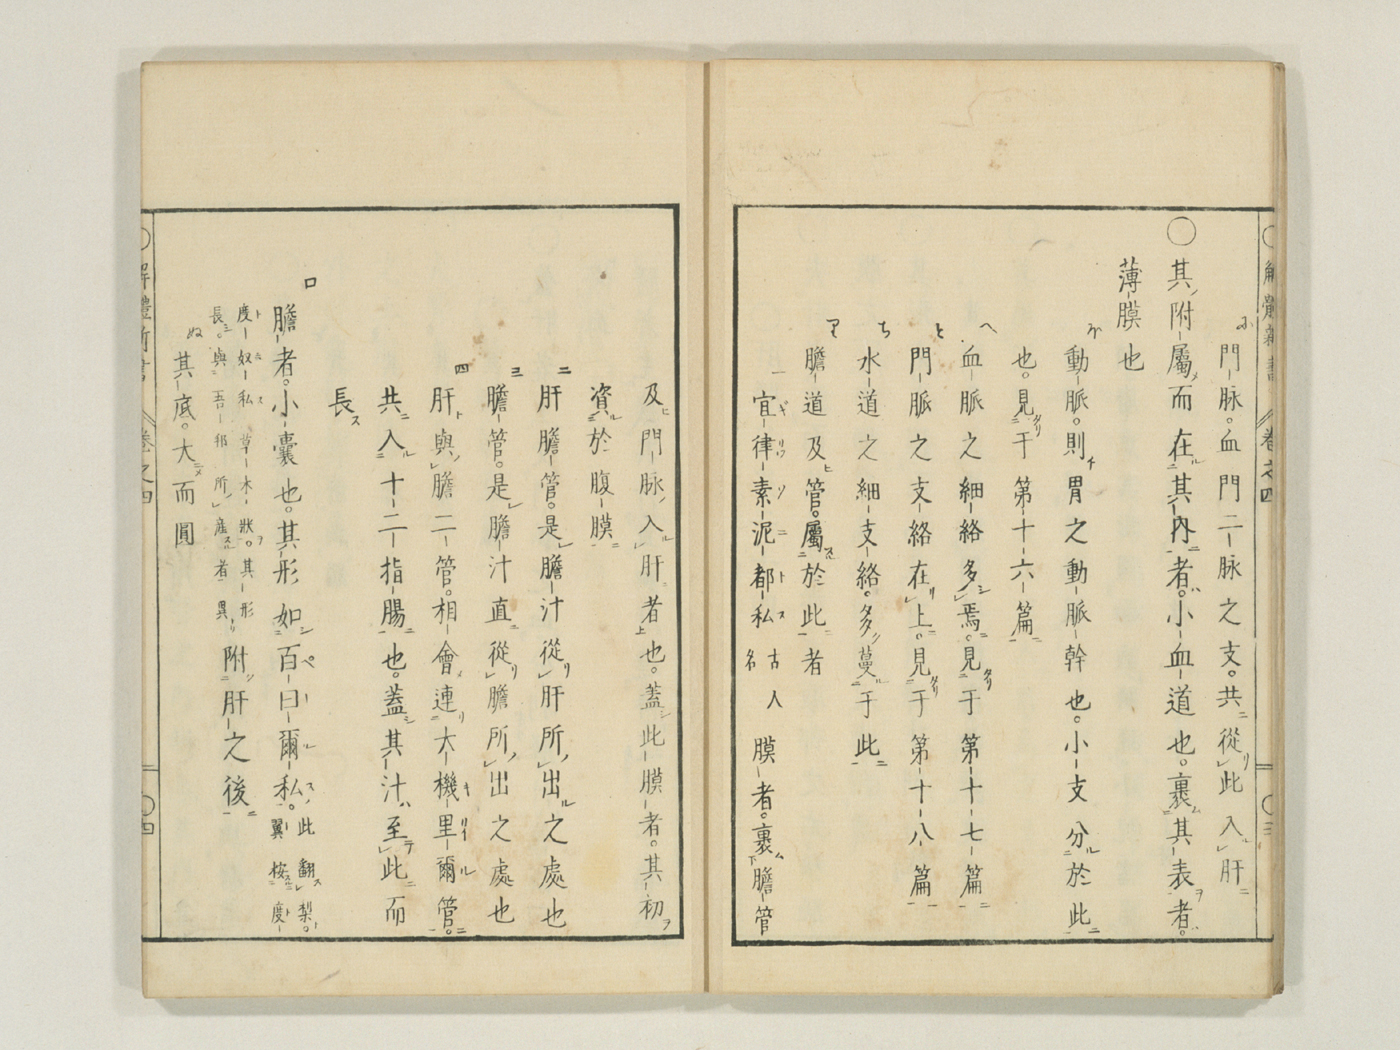 解體新書 卷之四 〇三
ほ 門脉。血門二脉之支。共從此入肝
〇其附屬而在其内者。小血道也。裹其表者。
薄膜也
動脈。則胃之動脈幹也。小支分於此
也。見于第十六篇
へ 血脈之細絡多焉。見于第十七篇
と 門脈之支絡在上。見于第十八篇
ち 水道之細支絡。多蔓于此
り 膽道及管。屬於此者
一 宜律素泥都私 古人名 膜者。裹膽管
及門脉入肝者也。蓋此膜者。其初
資於腹膜
二 肝膽管。是膽汁從肝所出之處也
三 膽管。是膽汁直從膽所出之處也
四 肝與膽二管。相會連大機里爾管。
共入十二指腸也。蓋其汁至此而
長
口 膽者。小囊也。其形如百日爾私。此翻梨。翼按度
度奴私草木狀。其形
長。與吾邦所產者異 附肝之後
ぬ 其底。大而圓
解體新書 卷之四 〇四